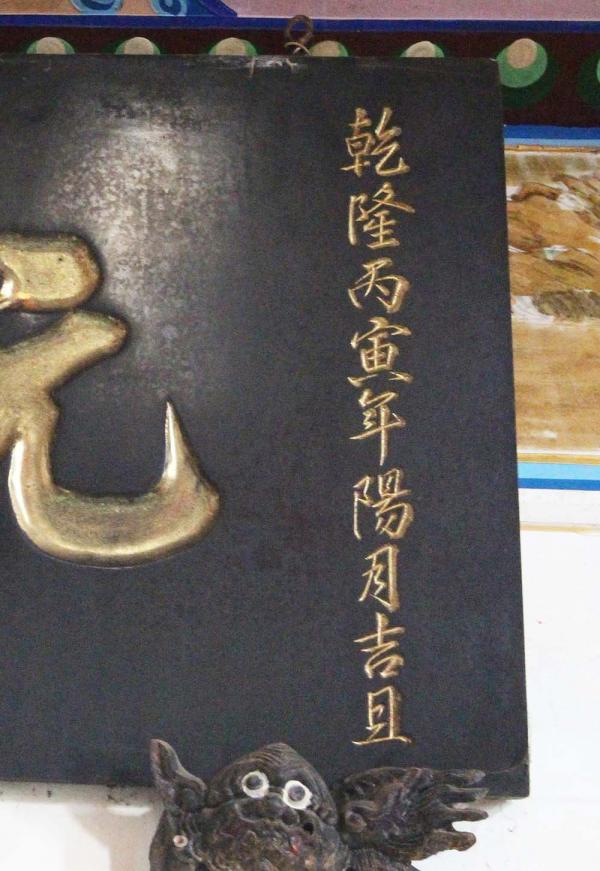 乾隆丙寅年陽月吉旦
元